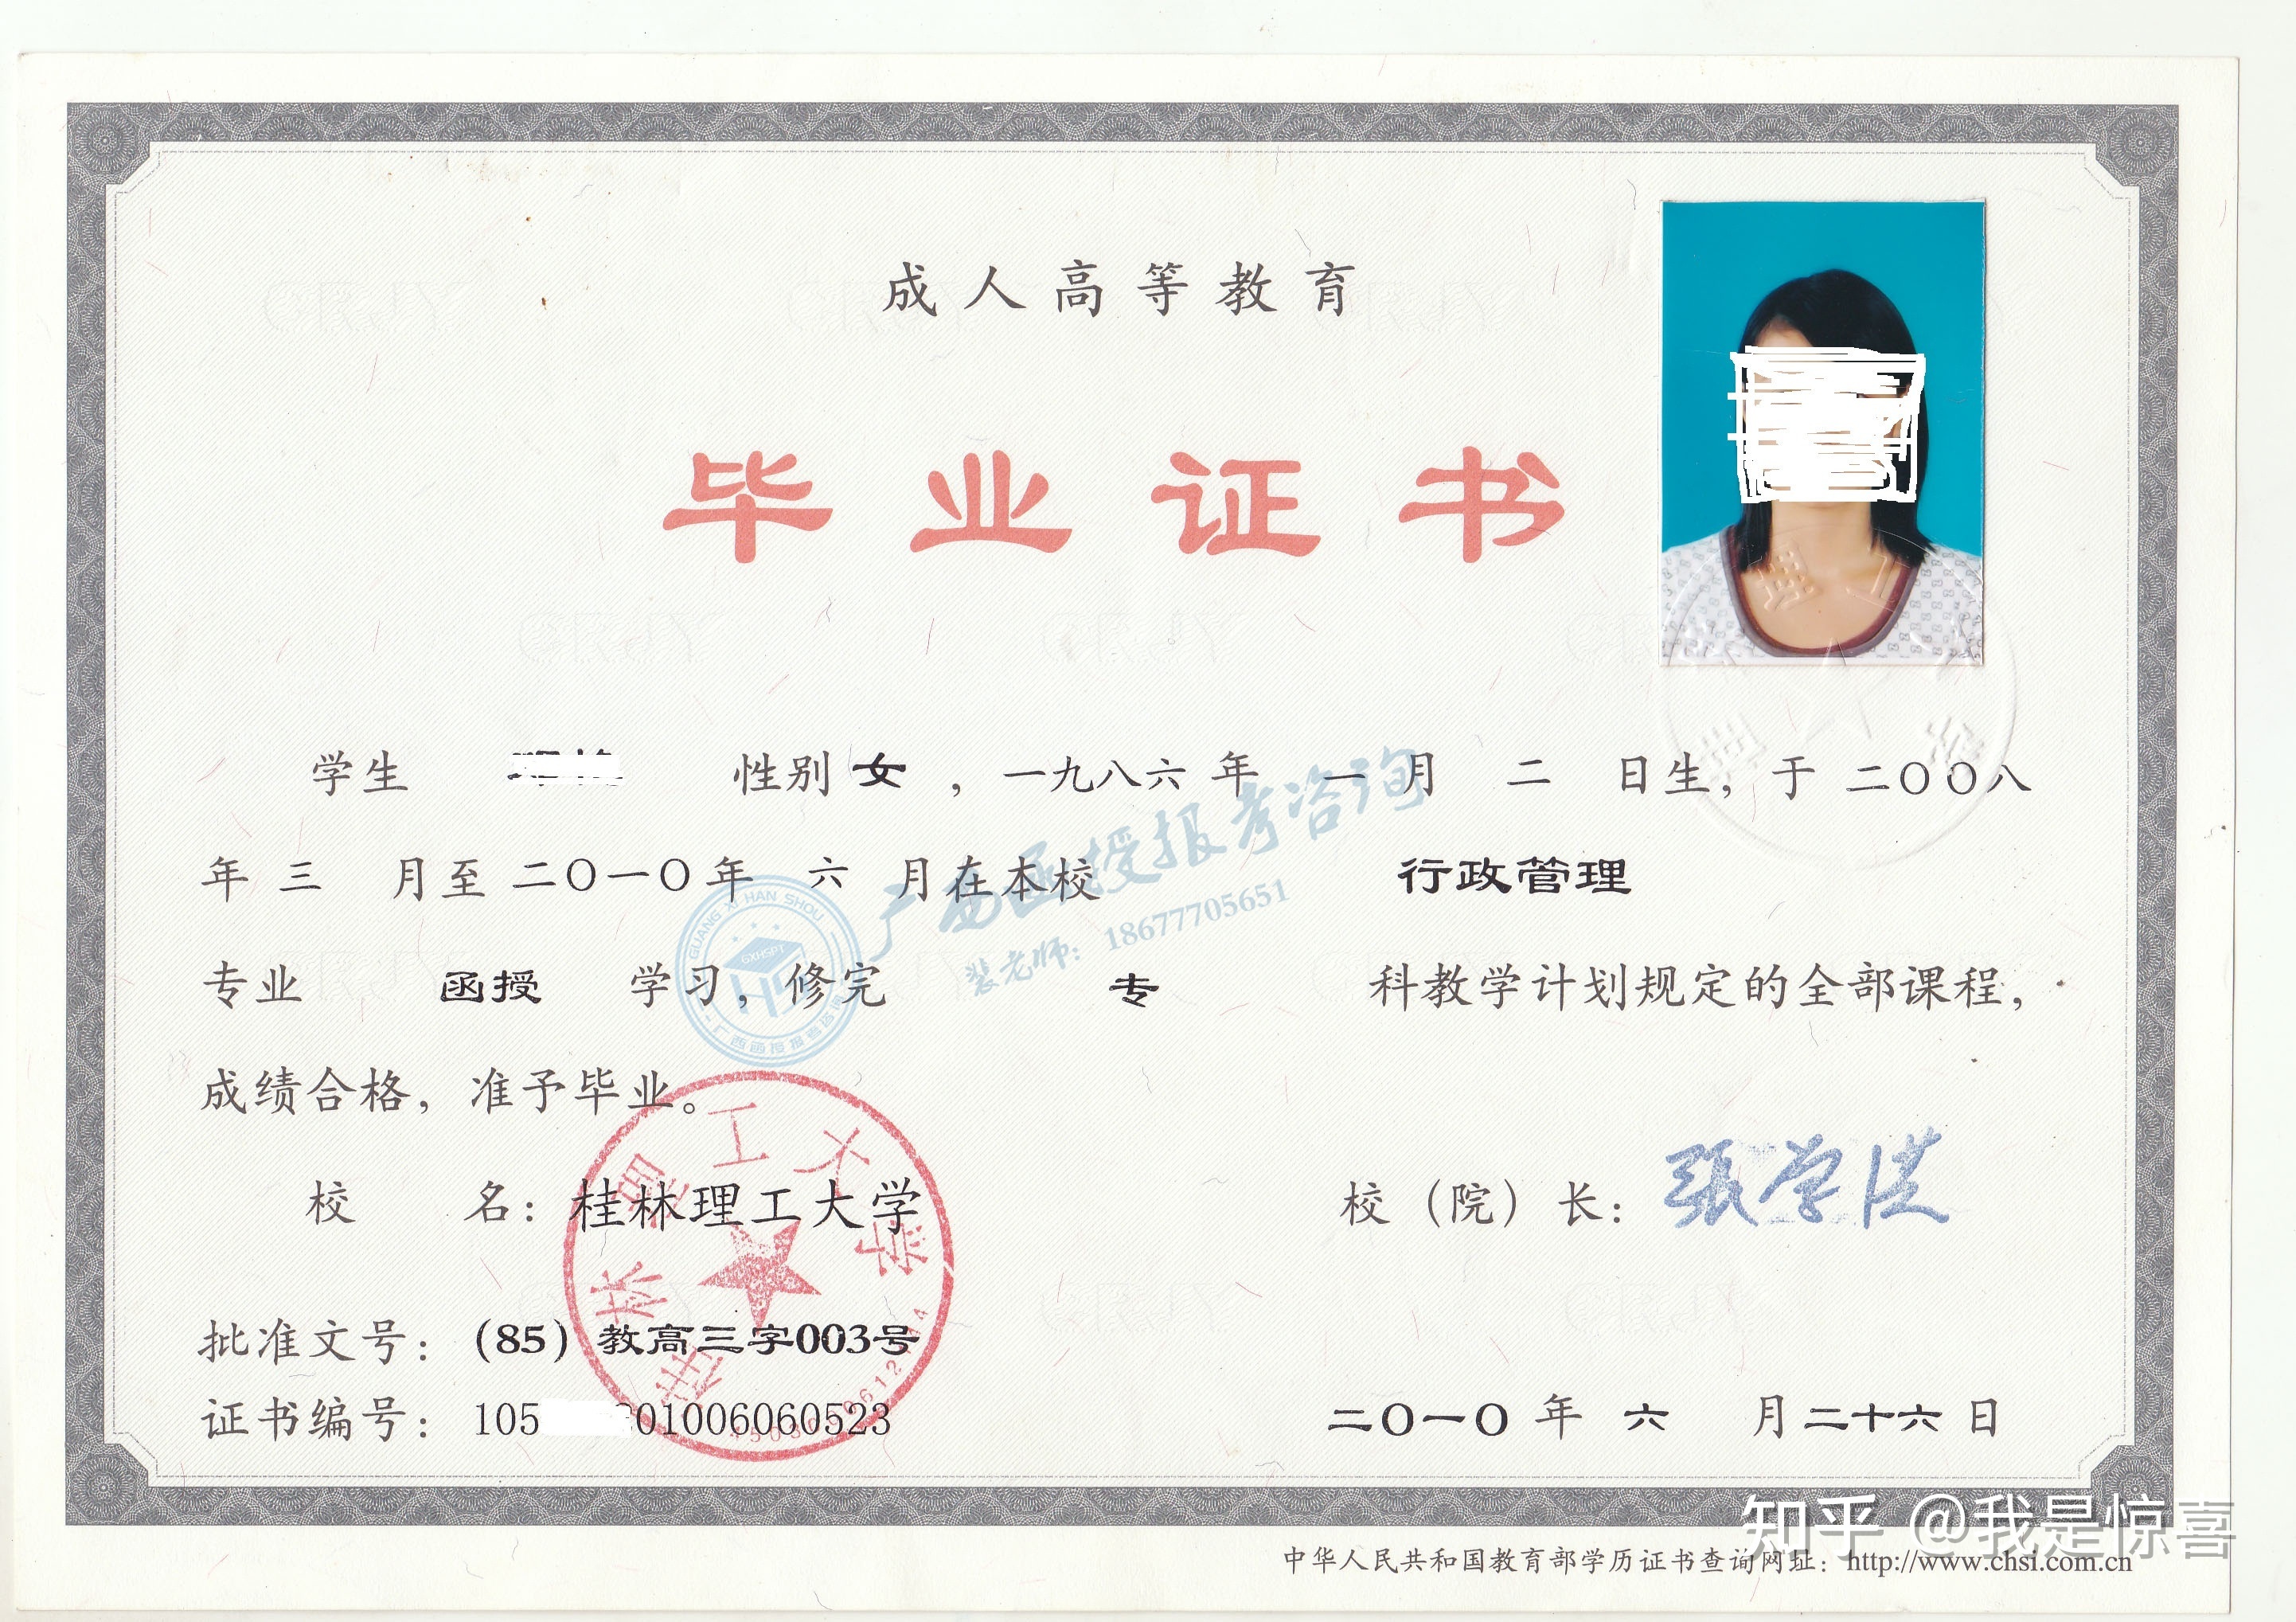 成人高等教育
毕业证书
学生 性别 女 ，一九八六 年 一 月 二 日生，于 二〇〇八
年 三 月至 二〇一〇 年 六 月在本校 行政管理
专业 函授 学习，修完 专 科教学计划规定的全部课程，
成绩合格，准予毕业。
校 名：桂林理工大学
校（院）长：張学洪
批准文号：（85）教高三字003号
证书编号：105 01006060523
二〇一〇 年 六 月二十六日
桂林理工大学
广西函授报考咨询
裴老师：18677705651
GUANG XI HAN SHOU
GXHSPT
广西函授报考咨询
知乎 @我是惊喜
中华人民共和国教育部学历证书查询网址：http://www.chsi.com.cn